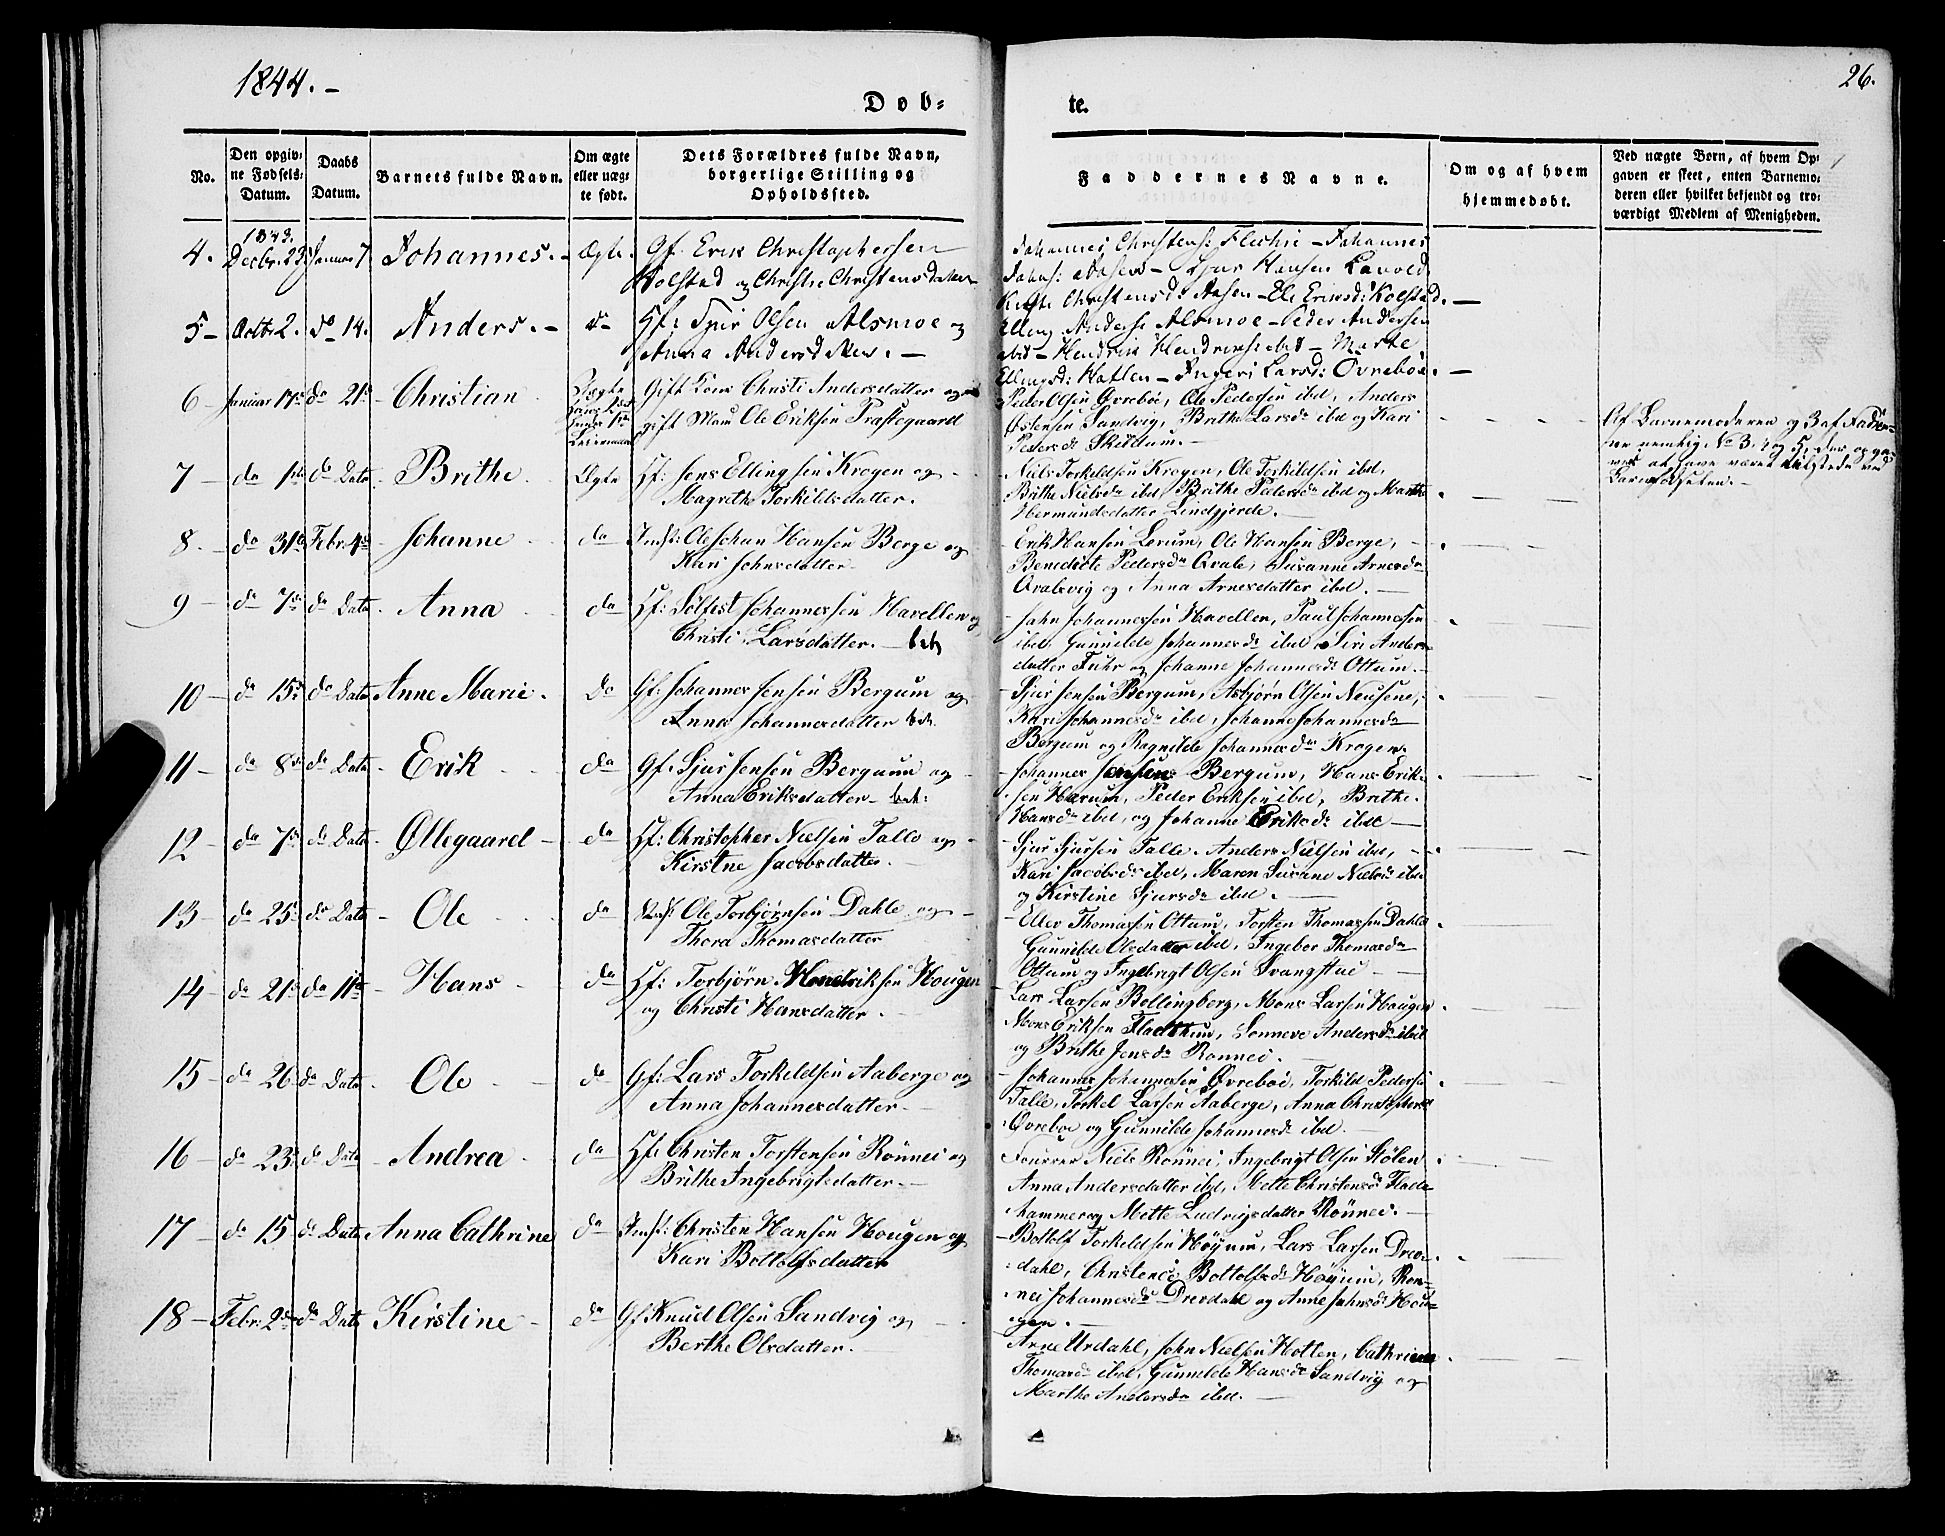 1844. –
26.
Døb-
te.
No.
Den opgiv-
ne Fødsels-
Datum.
Daabs
Datum.
Barnets fulde Navn.
Om ægte
eller uæg-
te født.
Dets Forældres fulde Navn,
borgerlige Stilling og
Opholdssted.
Faddernes Navne.
Om og af hvem
hjemmedøbt.
Ved uægte Børn, af hvem Op-
gaven er skeet, enten Barnemo-
deren eller hvilket bekjendt og tro-
værdigt Medlem af Menigheden.
1843.
4. Decbr. 23 Januar 7 Johannes. – Ægte. Gf. Erik Christophersen
Kolstad og Christie Christensdatter
Johannes Christens: – Johannes
Johns: Aasen – Sjur Hansen
Christensd: Aasen – Ele Eriksd: Kolstad. –
5 – Octbr. 2. do 14. Anders. – do – Hf: Olsen Alsmoe og
Anna Andersdatter. –
Elling Anderss: Alsmoe – Peder Andersen
ibid – Hendrik Hendriks: ibid – Marte
Ellingsd: Hatlen – Ingeri Larsd: Övreboe. –
6 – Januar 17de do 21de Christian Uægte
Leiermaal
Gift Kone Christi Andersdatter og
gift Mand Ole Eriksen Præstegaard
Peder Olsen Øvreboe, Ole Pedersen ibd, Anders
Sandvig, Brithe Larsdr ibd og Kari
Pedersdr Skildum. –
Af Barnemoderen og 3 af Fadder-
ne nemlig: No 3. og 5, der
at have været tilstede ved
Barnefødselen. –
7 – do 1de do Dato. Brithe. Ægte Hf: Jens Ellingsen Krogen og
Magrethe Torkildsdatter.
Niels Torkildsen Krogen, Ole Torkildsen ibd,
Brithe Nielsdr ibd, Brithe Pedersdr ibd og Marthe
Hermundsdatter Lindsjerde. –
8. – do 31de Febr. 4de Johanne do Inst: Ole Johan Hansen Berge og
Kari Johnsdatter
Erik Hansen Lerum, Ole Hansen Berge,
Benedicte Pedersdr Qvale, Susanne Arnesdr
Qvalevig og Anna Arnesdatter ibd. –
9 – do 7de do Dato. Anna do Hf: Sølfest Johannessen Havellen og
Christi Larsdatter. – bet
John Johannessen Havellen, Paul Johannessen
ibd, Gunnilde Johannesdr ibd, Siri Anders-
datter Fuhr og Johanne Johannesdr Ottum. –
10 – do 15de do Dato Anne Marie. do Gf: Johannes Jensen Bergum og
Anna Johannesdatter bet.
Sjur Jensen Bergum, Asbjørn Olsen Neusene,
Kari Johannesdr ibd, Johanne Johannesdr
Bergum og Ragnilde Johannesdr Krogen.
11 – do 8de do Dato – Erik do Gf: Sjur Jensen Bergum og
Anna Eriksdatter – bet:
Johannes Jensen Bergum, Hans Erik-
sen Hærum, Peder Eriksen ibd, Brithe
Hansdr ibd, og Johanne Eriksdr ibd –
12 – do 7de do Dato – Øllegaard – do Hf: Christopher Nielsen Talle og
Kirstne Jacobsdatter.
Sjur Sjursen Talle. Anders Nielsen ibd,
Kari Jacobsdr ibd, Maren Susane Nielsdr ibd
og Kirstine Sjursdr ibd. –
13 – do 25de do Dato – Ole do Ole Torbjørnsen Dahle og
Thora Thomasdatter
Ellev Thomassen Ottum, Torsten Thomassen Dahle
Gunnilde Olsdatter ibd, Ingebor Thomasdr
Ottum og Ingebrigt Olsen Svangstue –
14 – do 21de do 11te – Hans do Hf: Torbjørn Hendriksen Hougen
og Christi Hansdatter.
Lars Larsen Bollingberg, Mons Larsen Hougen
Mons Eriksen Fladhum, Sonneve Andersdr ibd
og Brithe Jensdr Rønnei. –
15 – do 26 do Dato. Ole do Gf: Lars Torkildsen Aaberge og
Anna Johannesdatter. –
Johannes Johannessen Øvreboe, Torkild Pedersen
Talle, Torkel Larsen Aaberge, Anna
Øvreboe og Gunnilde Johannesdr ibd. –
16 – do 23de do Dato – Andrea. do Hf: Christen Torstensen Rønnei og
Brithe Ingebrigtsdatter. –
Fourrer Niels Rønnei, Ingebrigt Olsen Stølen
Anna Andersdatter ibd, Mette Christensdr Flade-
hammer og Mette Ludvigsdatter Rønnei. –
17 – do 15 do Dato Anna Cathrine do Inst: Christen Hansen Hougen og
Kari Bottolfsdatter
Bottolf Torkildsen Høyum, Lars Larsen Drev-
dahl, Christence Bottolfsdr Høyum, Ron-
nei Johannesdr Drevdahl og Anne Johnsdr Hou-
gen. –
18 – Febr. 2den do Dato Kirstine – do Gf Knud Olsen Sandvig og
Berthe Olsdatter.
Arne Urdahl, John Nielsen Holten, Cathrine
Thomasdr ibd, Gunnilde Hansdr Sandvig og
Marthe Andersdr ibd. –